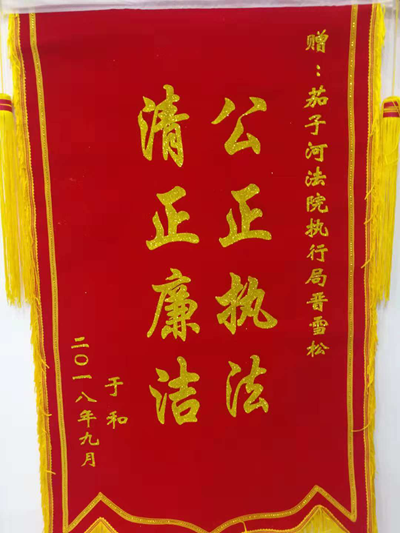 赠：茄子河法院执行局晋雪松
公正执法
清正廉洁
于和
二〇一八年九月